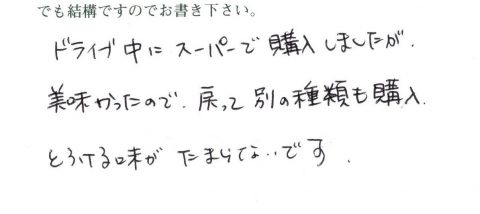 でも結構ですのでお書き下さい。
ドライブ中にスーパーで購入しましたが、
美味かったので、戻って別の種類も購入。
とろける味がたまらないです。